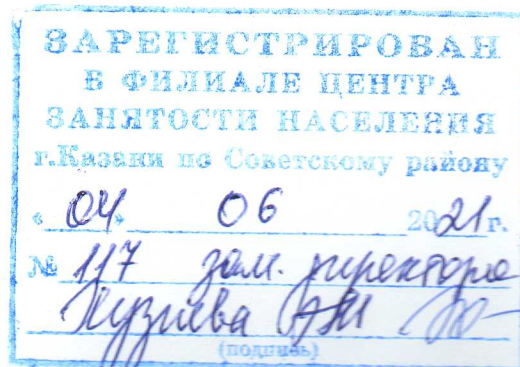 ЗАРЕГИСТРИРОВАН
В ФИЛИАЛЕ ЦЕНТРА
ЗАНЯТОСТИ НАСЕЛЕНИЯ
г.Казани по Советскому району
«04» 06 2021г.
№ 117 зам. директора
(подпись)